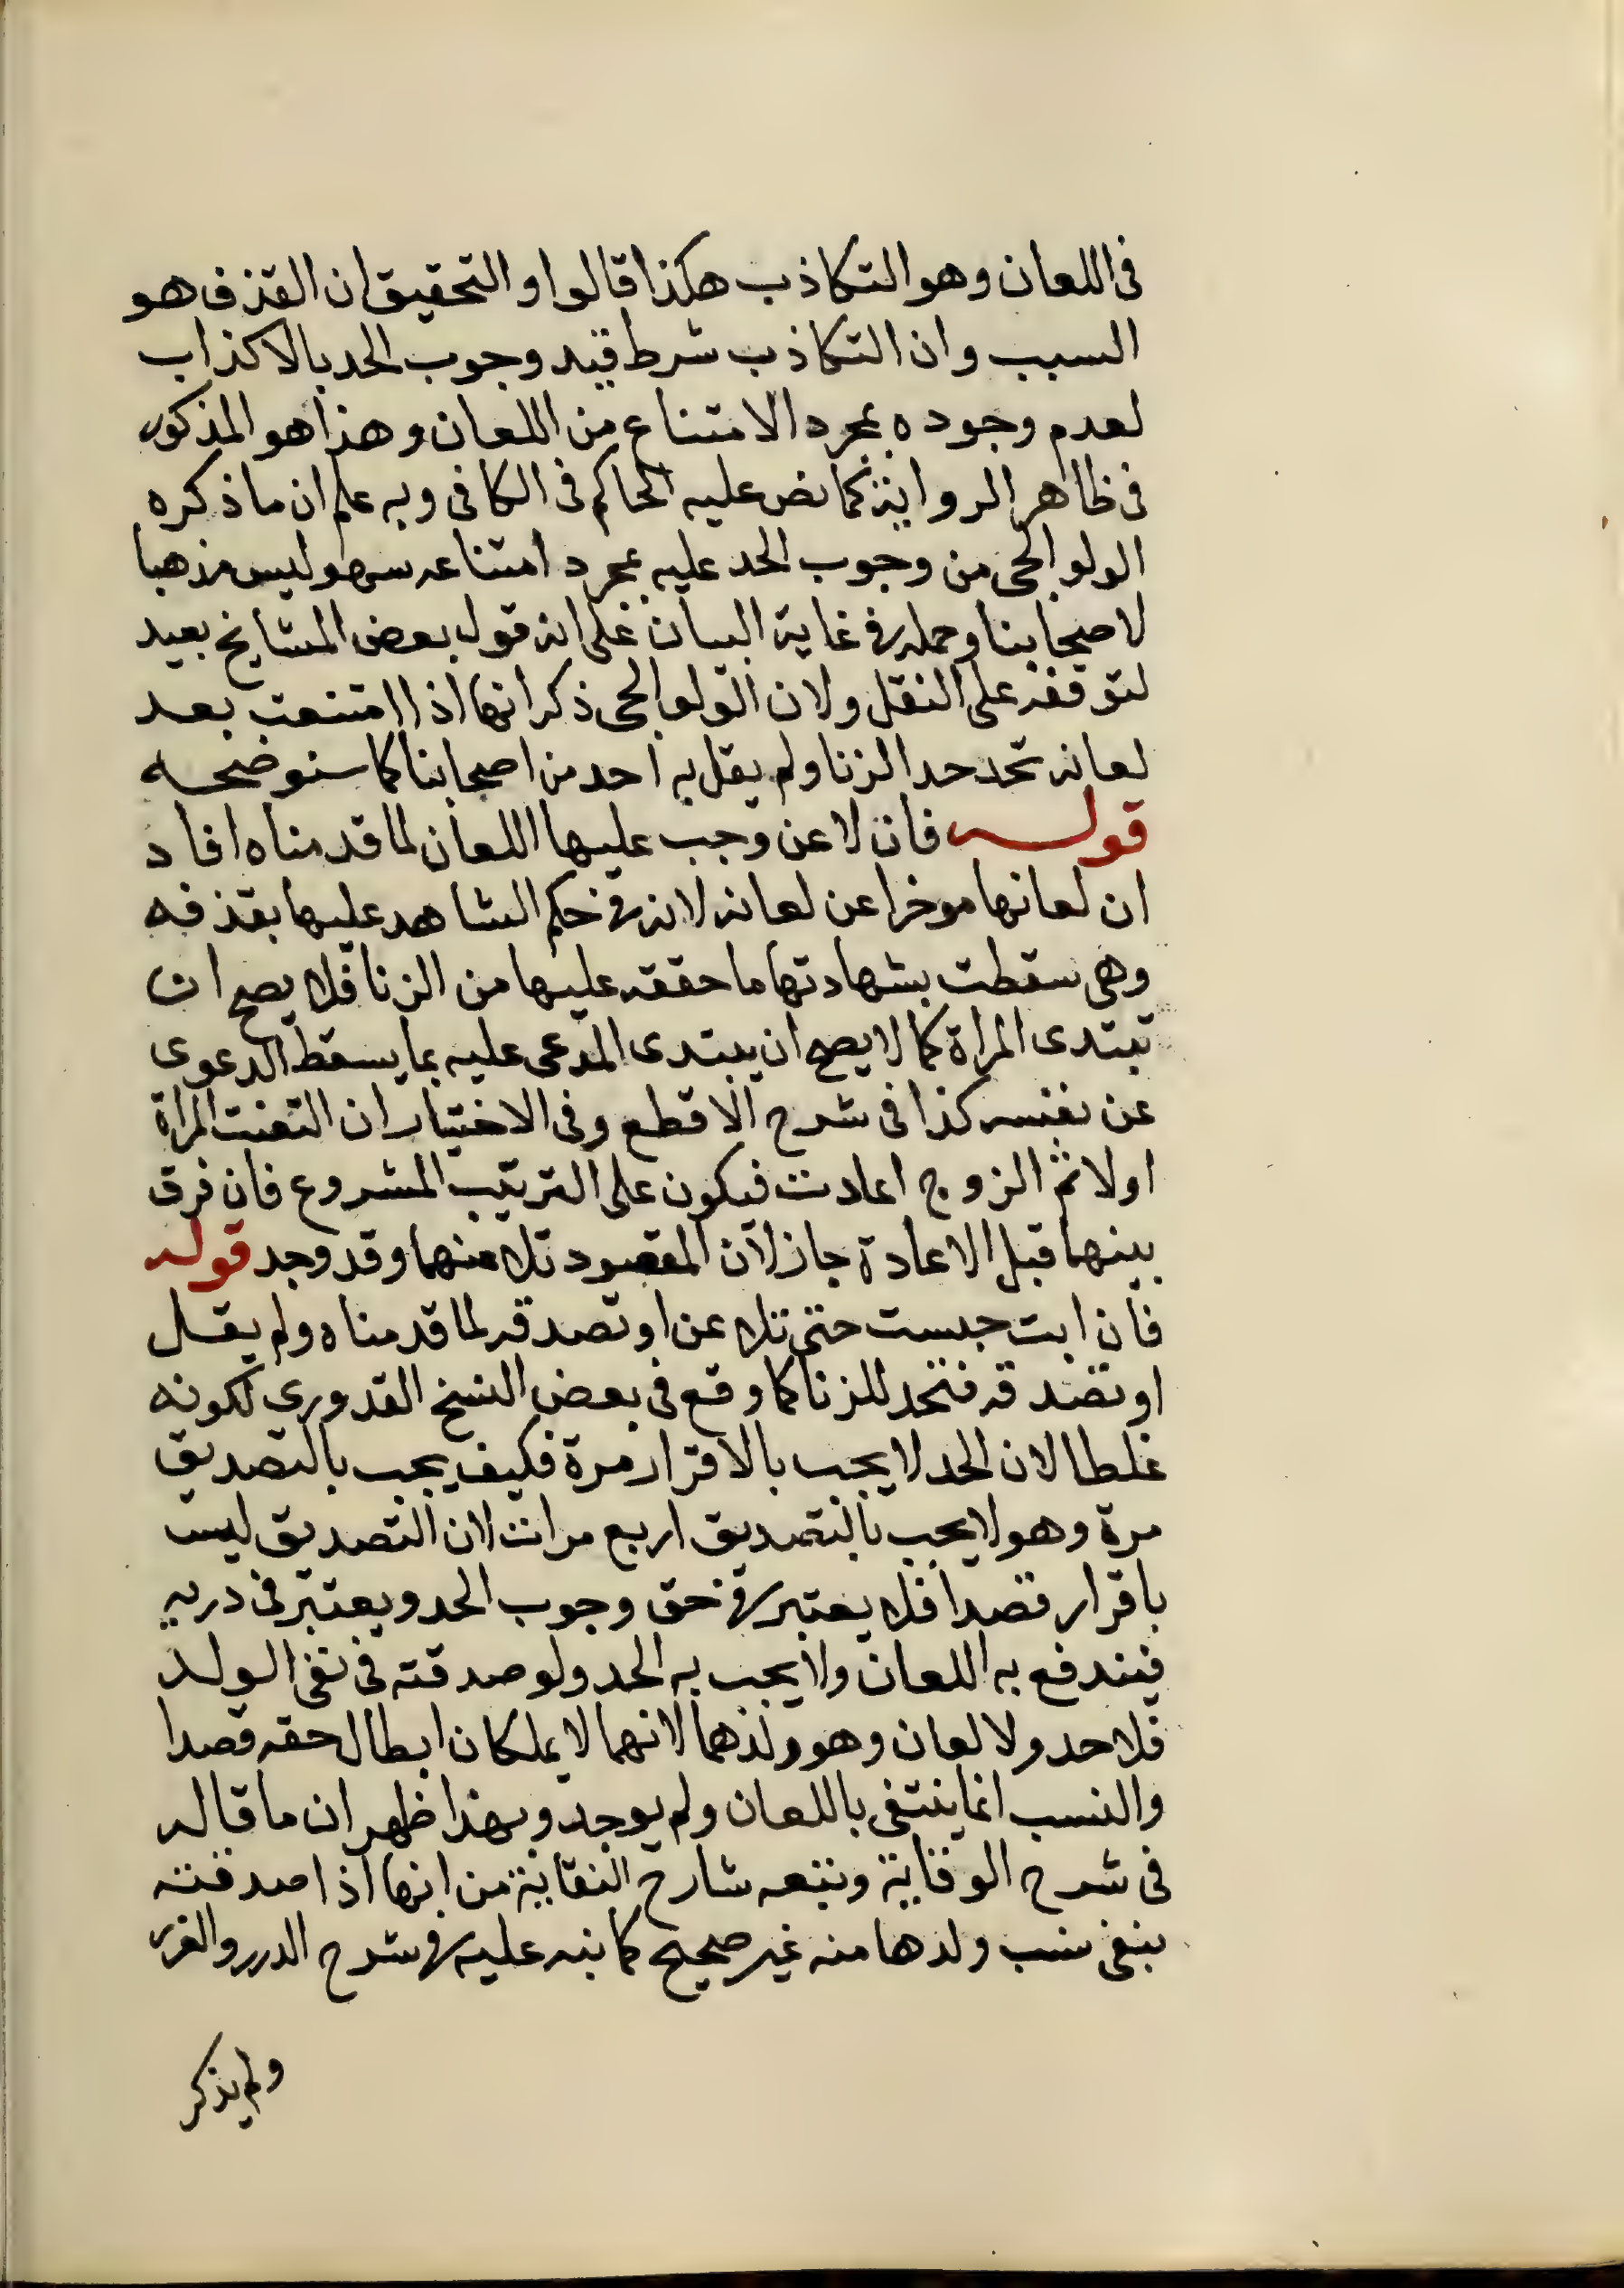 فى اللعان وهو التكاذب هكذا قالوا والتحقيق ان القذف هو
السبب وان التكاذب شرط قيد وجوب الحد بالاكذاب
لعدم وجوده بمجرد الامتناع من اللعان وهذا هو المذكور
فى ظاهر الرواية كما نص عليه الحاكم فى الكافى وبه علم ان ما ذكره
الولوالجى من وجوب الحد عليه بمجرد امتناعه سهو ليس مذهبا
لاصحابنا وحمله فى غاية البيان على انه قول بعض المشايخ بعيد
لتوقفه على النقل ولان الولوالجى ذكر انها اذا امتنعت بعد
لعانه تحد حد الزنا ولم يقل به احد من اصحابنا كما سنوضحه
قوله فان لاعن وجب عليها اللعان لما قدمناه افاد
ان لعانها موخرا عن لعانه لانه فى حكم الشاهد عليها بقذفه
وهى سقطت بشهادتها ما حققه عليها من الزنا فلا يصح ان
تبتدى المراة كما لا يصح ان يبتدى المدعى عليه بما يسقط الدعوى
عن نفسه كذا فى شرح الاقطع وفى الاختيار ان التعنت المراة
اولا ثم الزوج اعادت فيكون على الترتيب المشروع فان فرق
بينهما قبل الاعادة جاز لان المقصود تلاعنهما وقد وجد قوله
فان ابت حبست حتى تلاعن او تصدقه لما قدمناه ولم يقل
او تصدقه فتحد للزنا كما وقع فى بعض النسخ القدورى لكونه
غلطا لان الحد لا يجب بالاقرار مرة فكيف يجب بالتصديق
مرة وهو لا يجب بالتصديق اربع مرات لان التصديق ليس
باقرار قصدا فلا يعتبر فى حق وجوب الحد ويعتبر فى دريه
فيندفع به اللعان ولا يجب به الحد ولو صدقته فى نفى الولد
فلا حد ولا لعان وهو ولدهما لانهما لا يملكان ابطال حقه قصدا
والنسب انما ينتفى باللعان ولم يوجد وبهذا ظهر ان ما قاله
فى شرح الوقاية وتبعه شارح النقاية من انها اذا صدقته
ينفى نسب ولدها منه غير صحيح كما نبه عليه فى شرح الدرر والغرر
ولم يذكر